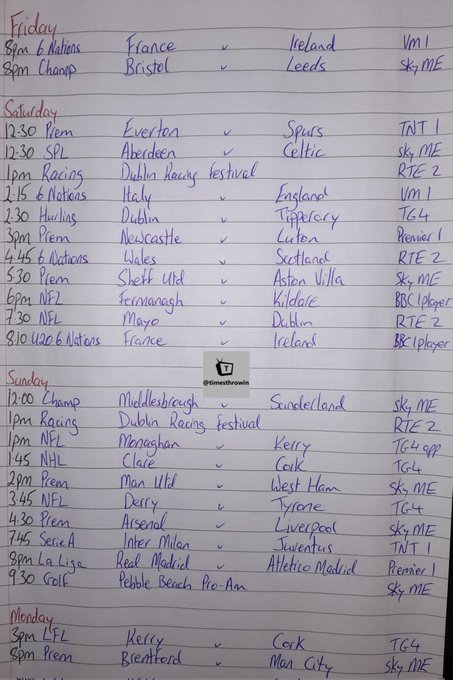 Friday
8pm 6 Nations France v Ireland VM1
8pm Champ Bristol v Leeds Sky ME
Saturday
12.30 Prem Everton v Spurs TNT 1
12.30 SPL Aberdeen v Celtic Sky ME
1pm Racing Dublin Racing Festival RTE 2
2.15 6 Nations Italy v England VM1
2.30 Hurling Dublin v Tipperary TG4
3pm Prem Newcastle v Luton Premier 1
4.45 6 Nations Wales v Scotland RTE 2
5.30 Prem Sheff Utd v Aston Villa Sky ME
6pm NFL Fermanagh v Kildare BBC iplayer
7.30 NFL Mayo v Dublin RTE 2
8.10 U20 6 Nations France v Ireland BBC iplayer
T
@timesthrowin
Sunday
12.00 Champ Middlesbrough v Sunderland Sky ME
1pm Racing Dublin Racing Festival RTE 2
1pm NFL Monaghan v Kerry TG4 app
1.45 NHL Clare v Cork TG4
2pm Prem Man Utd v West Ham Sky ME
3.45 NFL Derry v Tyrone TG4
4.30 Prem Arsenal v Liverpool Sky ME
7.45 Serie A Inter Milan v Juventus TNT 1
8pm La Liga Real Madrid v Atletico Madrid Premier 1
9.30 Golf Pebble Beach Pro-Am Sky ME
Monday
3pm LFL Kerry v Cork TG4
8pm Prem Brentford v Man City Sky ME